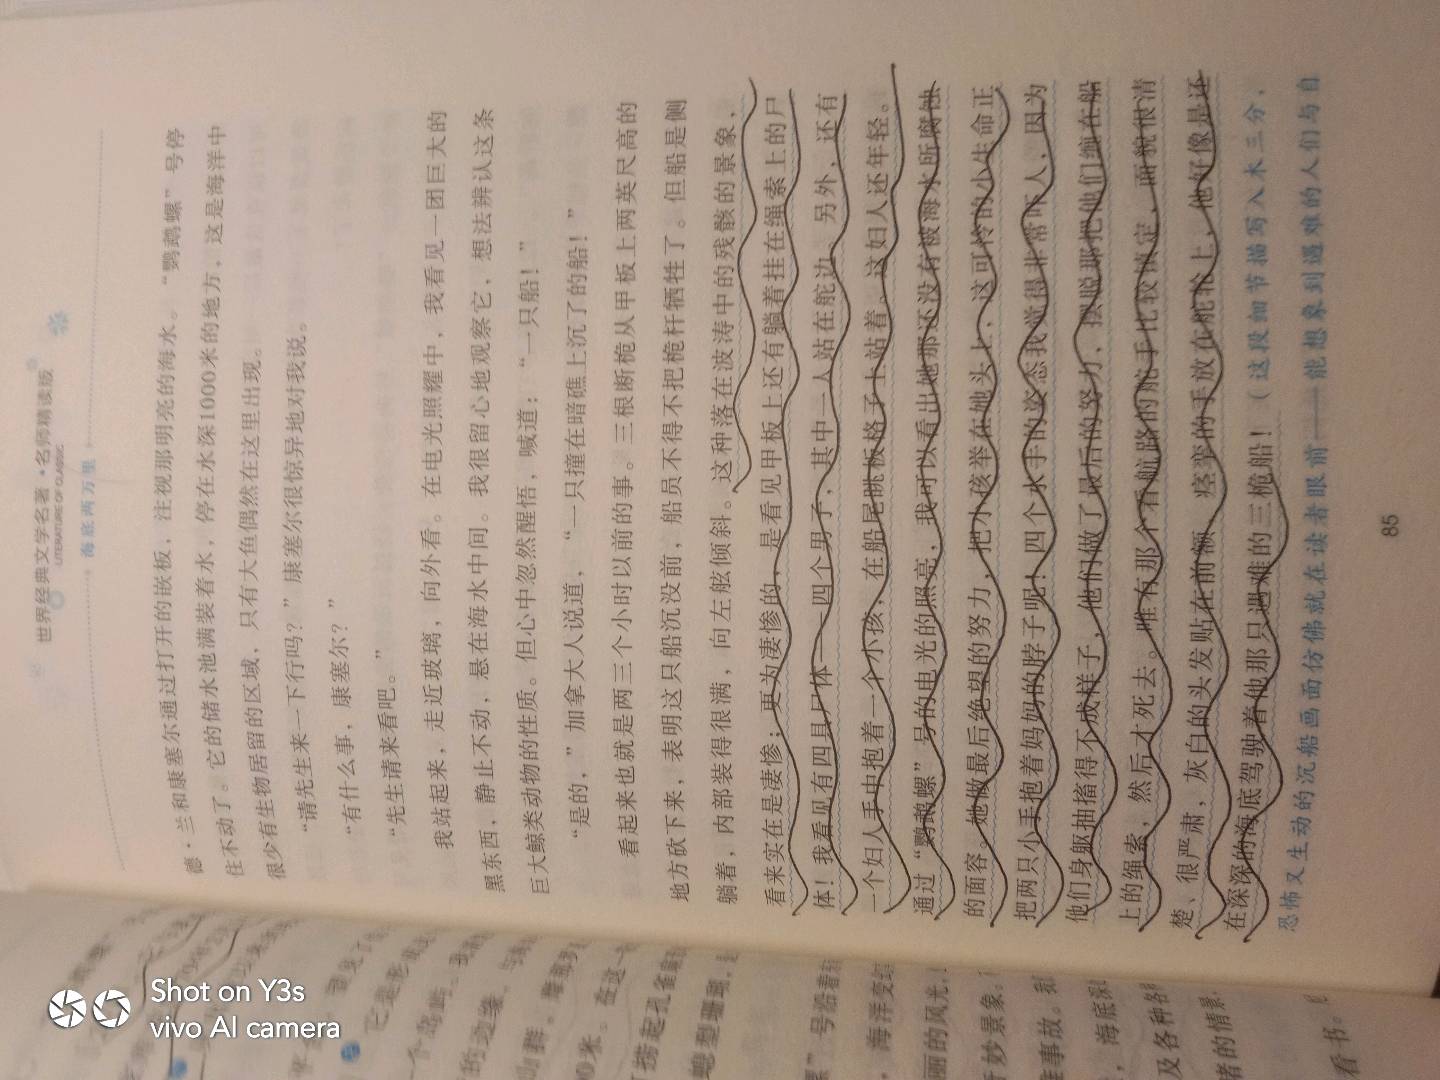 世界经典文学名著·名师精读版
LITERATURE OF CLASSIC
海底两万里
德·兰和康塞尔通过打开的嵌板，注视那明亮的海水。“鹦鹉螺”号停
住不动了。它的储水池满装着水，停在水深1000米的地方，这是海洋中
很少有生物居留的区域，只有大鱼偶然在这里出现。
“请先生来一下行吗？”康塞尔很惊异地对我说。
“有什么事，康塞尔？”
“先生请来看吧。”
我站起来，走近玻璃，向外看。在电光照耀中，我看见一团巨大的
黑东西，静止不动，悬在海水中间。我很留心地观察它，想法辨认这条
巨大鲸类动物的性质。但心中忽然醒悟，喊道：“一只船！”
“是的，”加拿大人说道，“一只撞在暗礁上沉了的船！”
看起来也就是两三个小时以前的事。三根断桅从甲板上两英尺高的
地方砍下来，表明这只船沉没前，船员不得不把桅杆牺牲了。但船是侧
躺着，内部装得很满，向左舷倾斜。这种落在波涛中的残骸的景象，
看来实在是凄惨；更为凄惨的，是看见甲板上还有躺着挂在绳索上的尸
体！我看见有四具尸体——四个男子，其中一人站在舵边，另外，还有
一个妇人手中抱着一个小孩，在船尾眺板格子上站着。这妇人还年轻。
通过“鹦鹉螺”号的电光的照亮，我可以看出她那还没有被海水所腐蚀
的面容。她做最后绝望的努力，把小孩举在她头上，这可怜的小生命正
把两只小手抱着妈妈的脖子呢！四个水手的姿态我觉得非常吓人，因为
他们身躯抽搐得不成样子，他们做了最后的努力，摆脱那把他们缠在船
上的绳索，然后才死去。唯有那个看航路的舵手比较镇定，面貌很清
楚、很严肃，灰白的头发贴在前额，痉挛的手放在舵轮上，他好像是还
在深深的海底驾驶着他那只遇难的三桅船！（这段细节描写入木三分，
恐怖又生动的沉船画面仿佛就在读者眼前——能想象到遇难的人们与自
85
Shot on Y3s
vivo AI camera